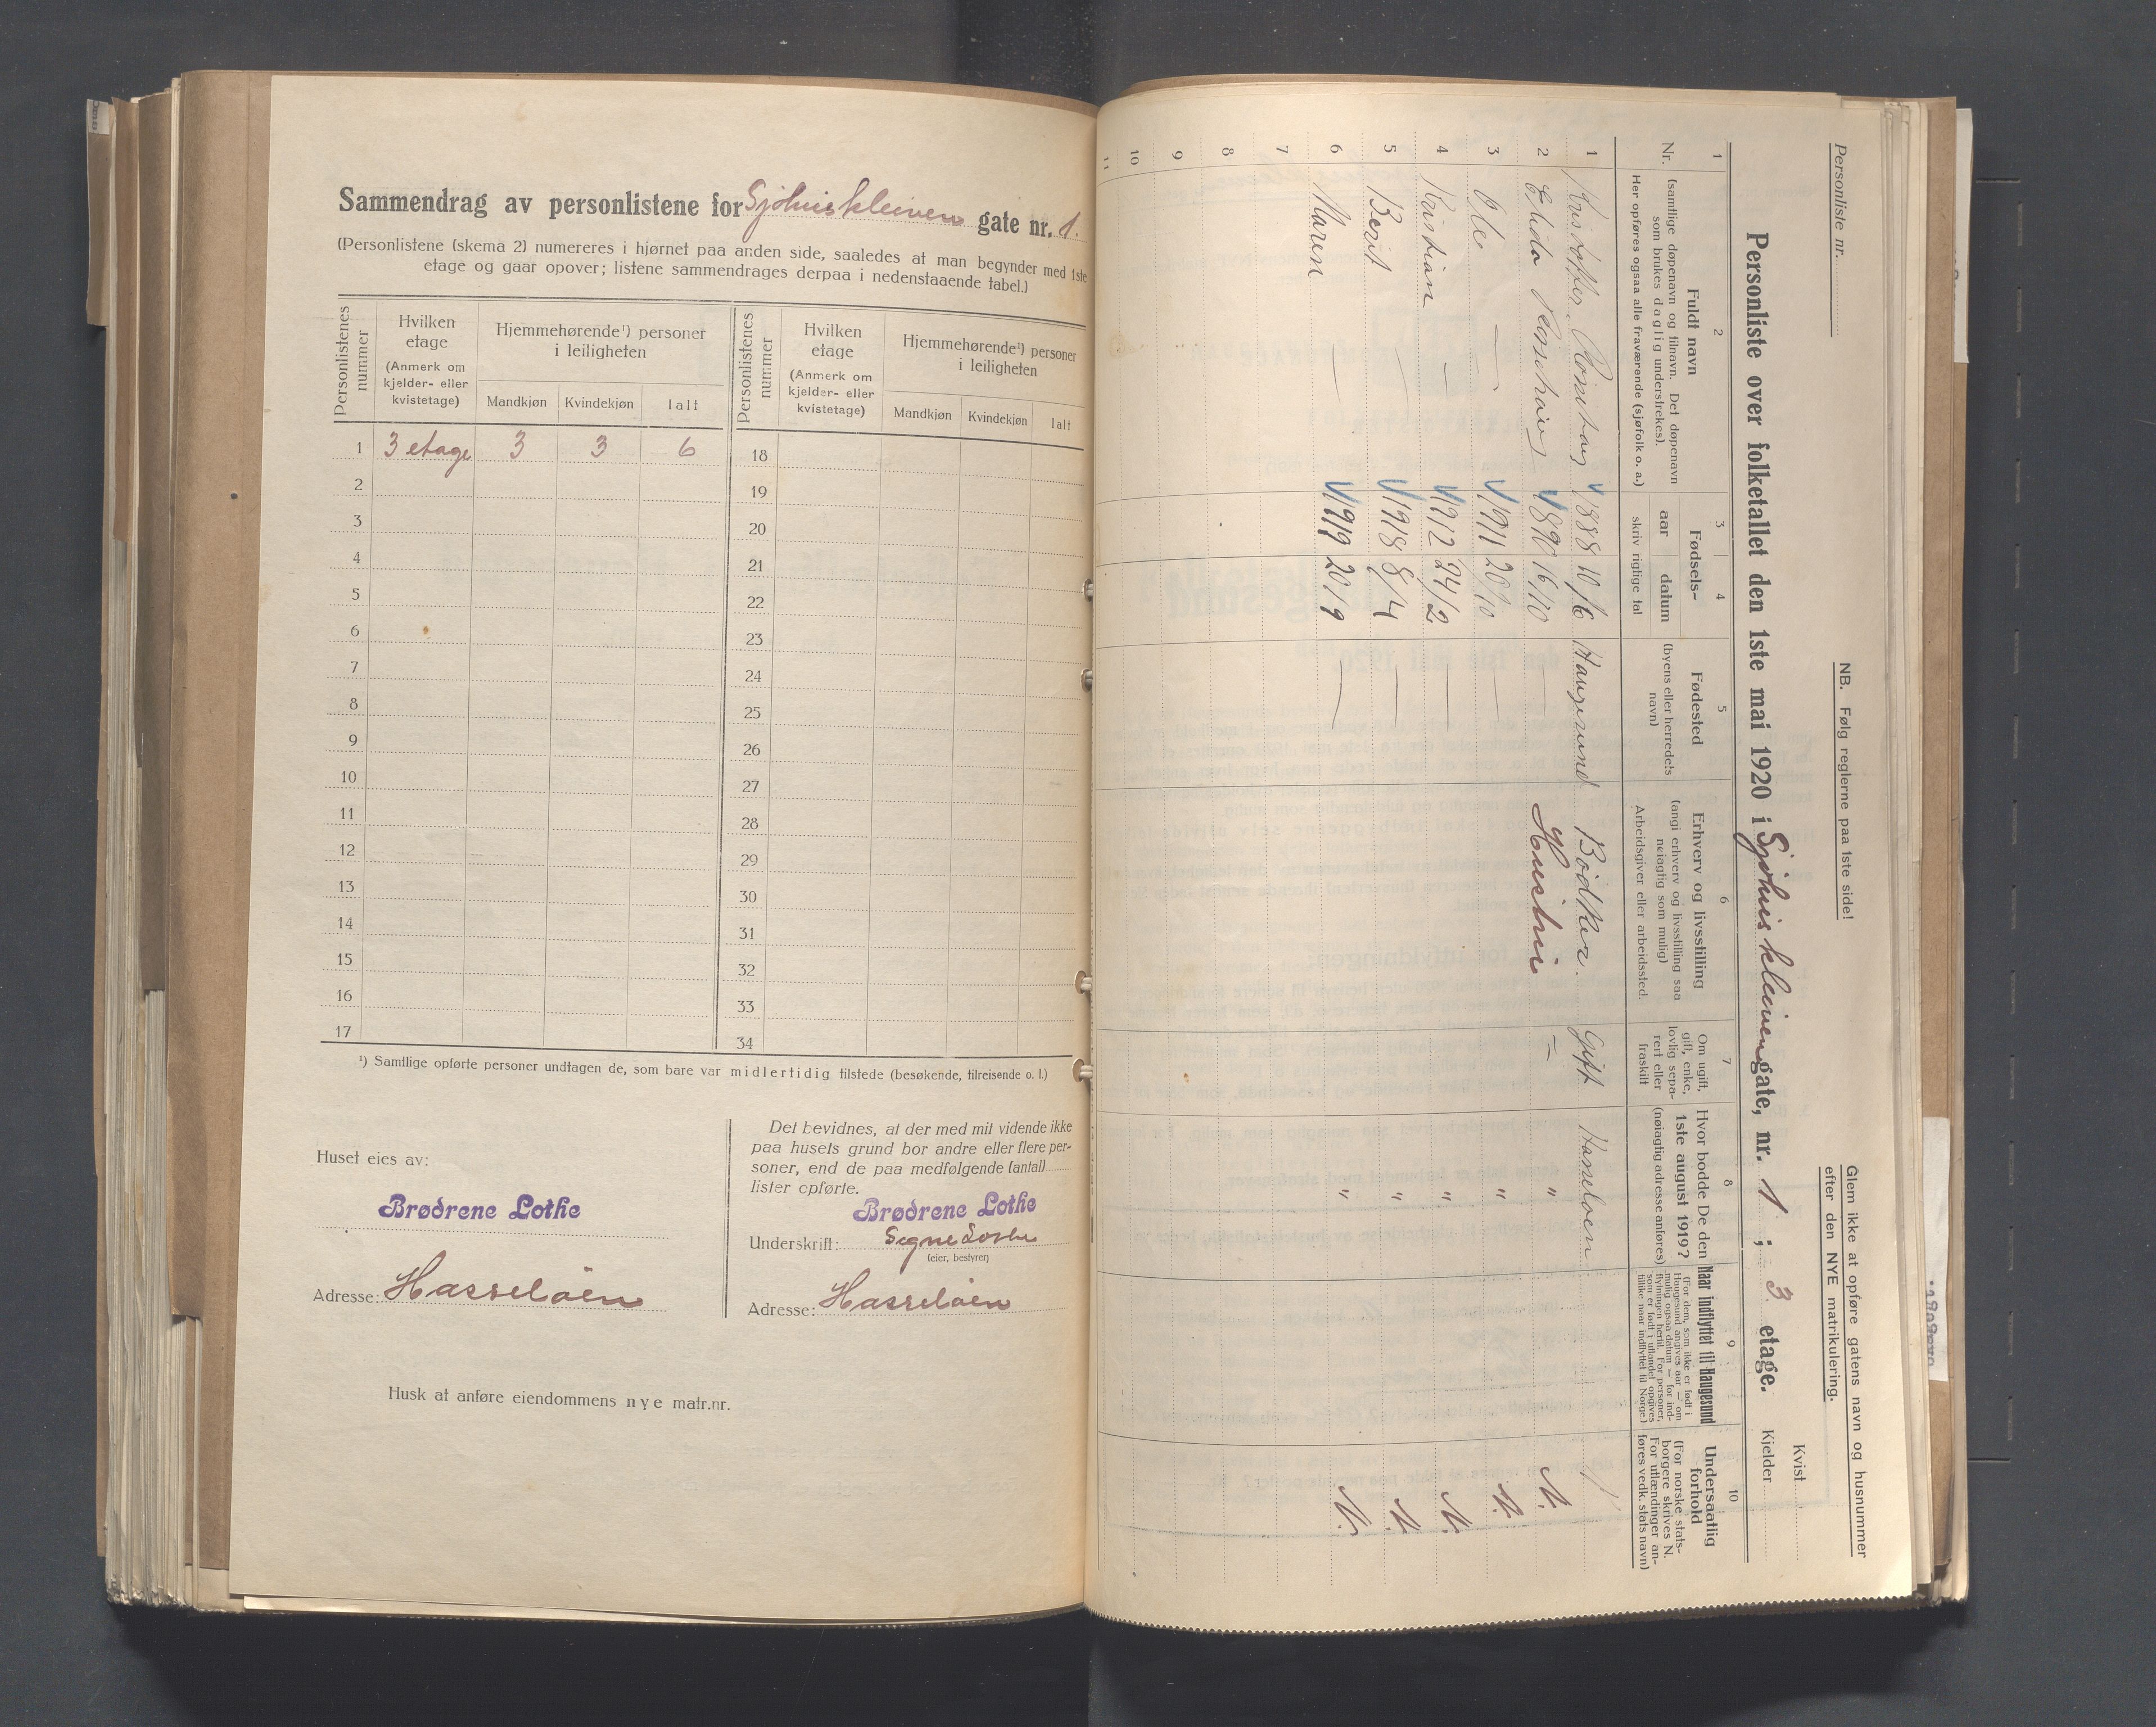 Sammendrag av personlistene for Sjøhuskleiven gate nr. 1.
(Personlistene (skema 2) numereres i hjørnet paa anden side, saaledes at man begynder med 1ste
etage og gaar opover; listene sammendrages derpaa i nedenstaaende tabel.)
Personlistenes nummer
Hvilken etage
(Anmerk om kjelder- eller kvistetage)
Hjemmehørende¹) personer i leiligheten
Mandkjøn Kvindekjøn Ialt
Personlistenes nummer
Hvilken etage
(Anmerk om kjelder- eller kvistetage)
Hjemmehørende¹) personer i leiligheten
Mandkjøn Kvindekjøn Ialt
1 3 etage 3 3 6 18
2 19
3 20
4 21
5 22
6 23
7 24
8 25
9 26
10 27
11 28
12 29
13 30
14 31
15 32
16 33
17 34
¹) Samtlige opførte personer undtagen de, som bare var midlertidig tilstede (besøkende, tilreisende o. l.)
Huset eies av:
Brødrene Lothe
Adresse: Hasseløen
Det bevidnes, at der med mit vidende ikke
paa husets grund bor andre eller flere per-
soner, end de paa medfølgende (antal)
lister opførte.
Brødrene Lothe
Underskrift: Signe Lothe
(eier, bestyrer)
Adresse: Hasseløen
Husk at anføre eiendommens nye matr.nr.
Personliste nr.
NB. Følg reglerne paa 1ste side!
Glem ikke at opføre gatens navn og husnummer
efter den NYE matrikulering.
Kvist
Personliste over folketallet den 1ste mai 1920 i Sjøhuskleiven gate, nr. 1 ; 3 etage.
Kjelder
1 2 3 4 5 6 7 8 9 10
Nr.
Fuldt navn
(samtlige døpenavn og tilnavn. Det døpenavn
som brukes daglig understrekes).
Her opføres ogsaa alle fraværende (sjøfolk o. a.)
Fødsels-
aar datum
skriv riglige tal
Fødested
(byens eller herredets
navn)
Erhverv og livsstilling
(angi erhverv og livsstilling saa
nøiagtig som mulig)
Arbeidsgiver eller arbeidssted.
Om ugift,
gift, enke,
lovlig sepa-
rert eller
fraskilt
Hvor bodde De den
1ste august 1919?
(nøiagtig adresse anføres)
Naar indflyttet til Haugesund
(For dem, som ikke er født i
Haugesund angives aar — om
mulig ogsaa datum — for ind-
flytningen hertil. For personer,
som er født i utlandet opgives
tillike naar indflyttet til Norge.)
Undersaatlig
forhold
(For norske stats-
borgere skrives N.
For utlændinger an-
føres vedk. stats navn)
1 Kristoffer 1888 10/6 Haugesund Bødker. Gift Hasseløen
2 1890 16/10 — Hustru = " N.
3 Ole — 1911 20/10 — " N.
4 Kristian — 1912 24/2 — " N.
5 Berit — 1918 8/4 — " N.
6 Maren — 1919 20/9 — " N.
7
8
9
10
11